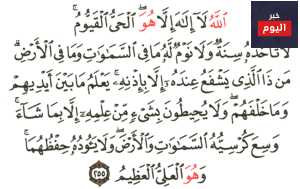 خبر
اليوم
ٱللَّهُ لَآ إِلَٰهَ إِلَّا هُوَ ۖ ٱلْحَىُّ ٱلْقَيُّومُ ۚ
لَا تَأْخُذُهُۥ سِنَةٌ وَلَا نَوْمٌ ۚ لَّهُۥ مَا فِى ٱلسَّمَٰوَٰتِ وَمَا فِى ٱلْأَرْضِ ۗ
مَن ذَا ٱلَّذِى يَشْفَعُ عِندَهُۥٓ إِلَّا بِإِذْنِهِۦ ۚ يَعْلَمُ مَا بَيْنَ أَيْدِيهِمْ
وَمَا خَلْفَهُمْ ۖ وَلَا يُحِيطُونَ بِشَىْءٍ مِّنْ عِلْمِهِۦٓ إِلَّا بِمَا شَآءَ ۚ
وَسِعَ كُرْسِيُّهُ ٱلسَّمَٰوَٰتِ وَٱلْأَرْضَ ۖ وَلَا يَـُٔودُهُۥ حِفْظُهُمَا ۚ
وَهُوَ ٱلْعَلِىُّ ٱلْعَظِيمُ ٢٥٥